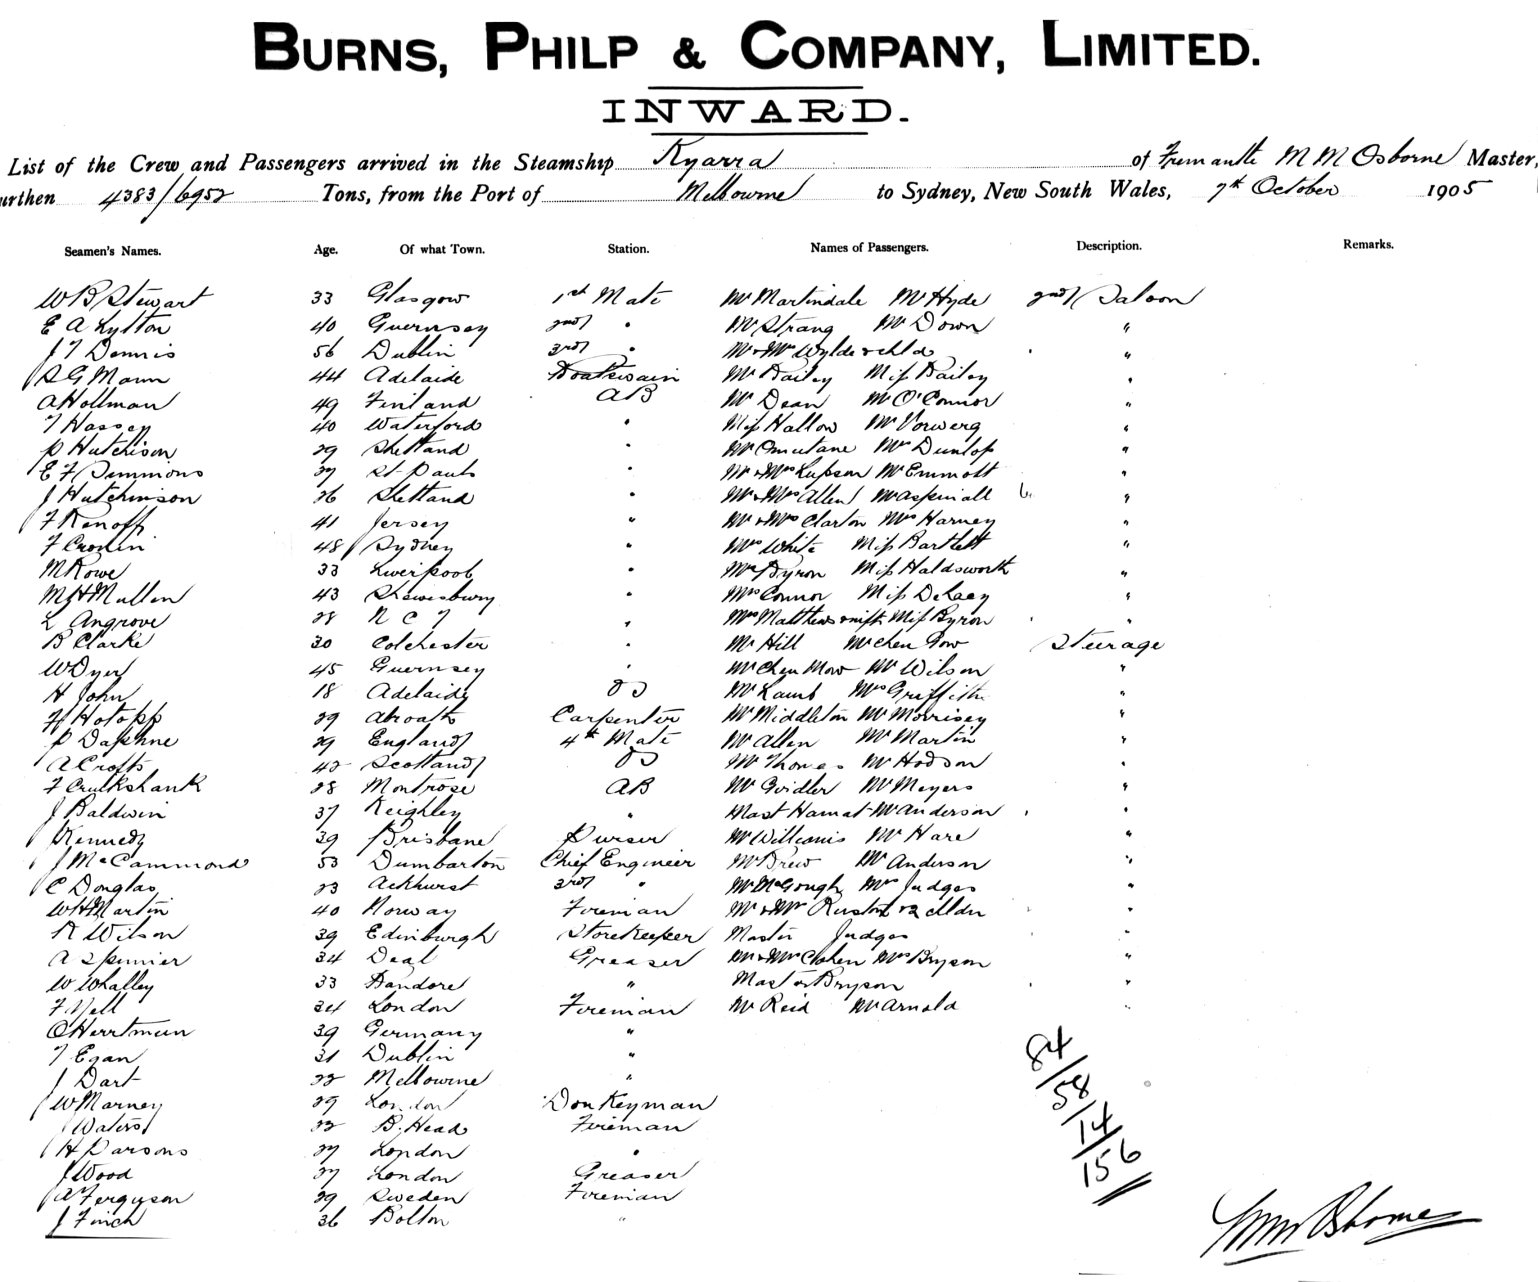 BURNS, PHILP & COMPANY, LIMITED.
INWARD.
List of the Crew and Passengers arrived in the Steamship Kyarra of Fremantle M M Osborne Master,
urthen 4383/6952 Tons, from the Port of Melbourne to Sydney, New South Wales, 7th October 1905
Seamen's Names. Age. Of what Town. Station. Names of Passengers. Description. Remarks.
W B Stewart 33 Glasgow 1st Mate Mr Martindale Mr Hyde 2nd Saloon
E A Lytton 40 Guernsey 2nd " Mr Strang Mr Down "
J T Dennis 56 Dublin 3rd " Mr & Mrs Wylde & chld "
S G Mann 44 Adelaide Boatswain Mr Bailey Miss Bailey "
A Hollman 49 Finland AB Mr Dean Mr O'Connor "
T Hassey 40 Waterford " Miss Hallow Mr Vorwerg "
P Hutchison 29 Shetland " Mr Dunlop "
E F Simmons 27 St Pauls " Mr & Mrs Lupson Mr Emmott "
J Hutchinson 26 Shetland " Mr & Mrs Allen Mr Aspinall "
F Renoff 41 Jersey " Mr & Mrs Clarton Mrs Harney "
F Cronin 48 Sydney " Mrs White Miss Bartlett "
M Rowe 33 Liverpool " Mrs Byron Miss Haldsworth "
McMullen 43 Shrewsbury " Mrs Connor Miss DeLacy "
L Angrove 28 N C T " Mrs Matthews & inft Miss Byron "
B Clarke 30 Colchester " Mr Hill Mr Chen Gow Steerage
W Dyer 45 Guernsey " Mr Chen Mow Mr Wilson "
H John 18 Adelaide OS Mr Lamb Mrs Griffiths "
H Hotopp 29 Abroath Carpenter Mr Middleton Mr Morrisey "
P Daphne 29 England 4th Mate Mr Allen Mr Martin "
A Crofts 42 Scotland OS Mr Thomas Mr Hodson "
F Cruikshank 28 Montrose AB Mr Goidler Mr Meyers "
J Baldwin 37 Keighley " Mast Hamat Mr Anderson "
Kennedy 39 Brisbane Purser Mr Williams Mr Hare "
J McCammond 53 Dumbarton Chief Engineer Mr Drew Mr Anderson "
C Douglas 23 Ackhurst 3rd " Mr McGough Mrs Judges "
W H Martin 40 Norway Fireman Mr & Mrs Ruston & 2 chldn "
R Wilson 39 Edinburgh Storekeeper Master Judges "
A Spinnier 34 Deal Greaser Mr & Mrs Cohen Mrs Bryson "
W Whalley 33 Bandore " Master Bryson "
F Yell 34 London Fireman Mr Reid Mr Arnold "
O Herrtmun 39 Germany "
T Egan 31 Dublin "
J Dart 22 Melbourne "
W Marney 29 London Donkeyman
J Waters 32 B. Head Fireman
H Parsons 27 London "
J Wood 27 London Greaser
A Ferguson 29 Sweden Fireman
J Finch 36 Bolton "
84/58/14/156
M M Osborne